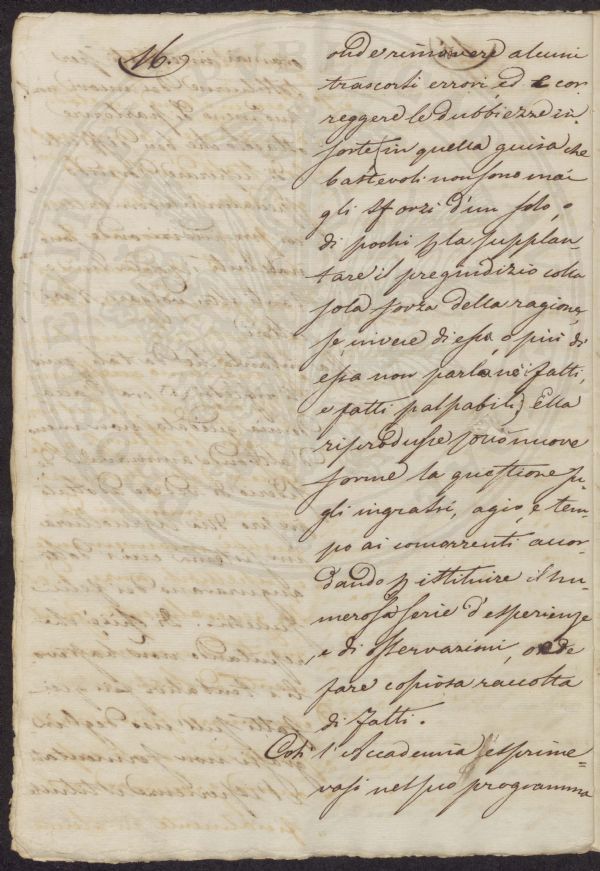 16.
onde rimovere alcuni
trascorsi errori, ed e cor
reggere le dubbiezze in
sorte (in quella guisa che
bastevoli non sono mai
gli sforzi d'un solo, o
di pochi p la supplan-
tare il pregiudizio colla
sola forza della ragione,
se invece di essa, o più di
essa non parlano i fatti,
e fatti palpabili) Ella
riprodusse sotto nuove
forme la questione su
gli ingrassi, agio, e tem-
po ai concorrenti accor-
dando p istituire il nu-
merosa serie d'esperienze
, e di osservazioni, onde
fare copiosa raccolta
di fatti.
Così l'Accademia esprime-
vasi nel suo programma